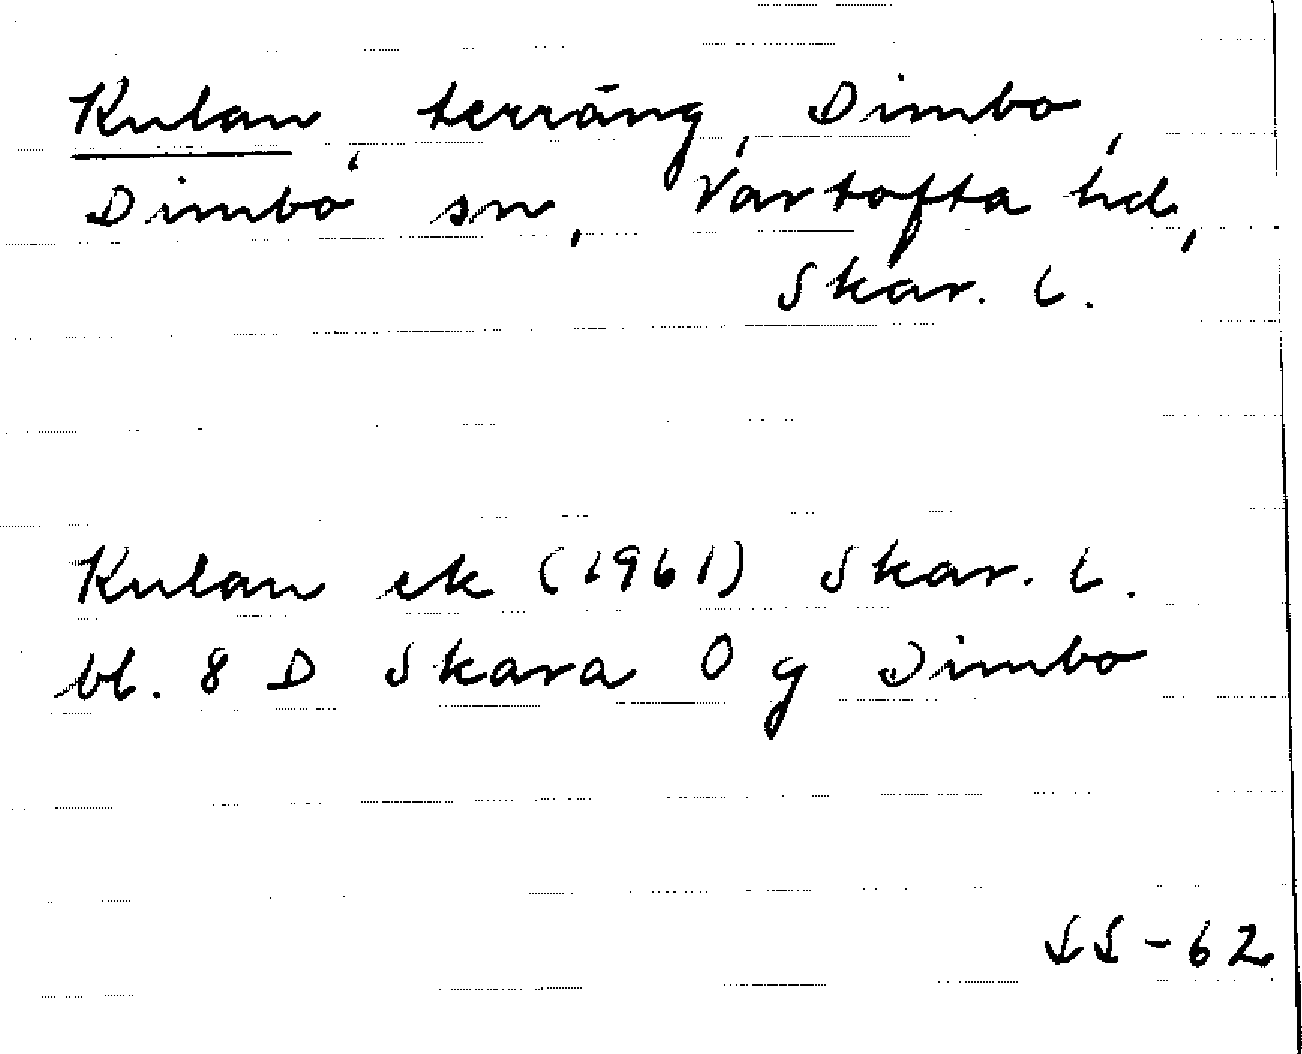 Kulan, terräng, Dimbo,
Dimbo sn, Vartofta hd,
Skar. l.
Kulan ek (1961) Skar. l.
bl. 8 D Skara 0 g Dimbo
SS-62